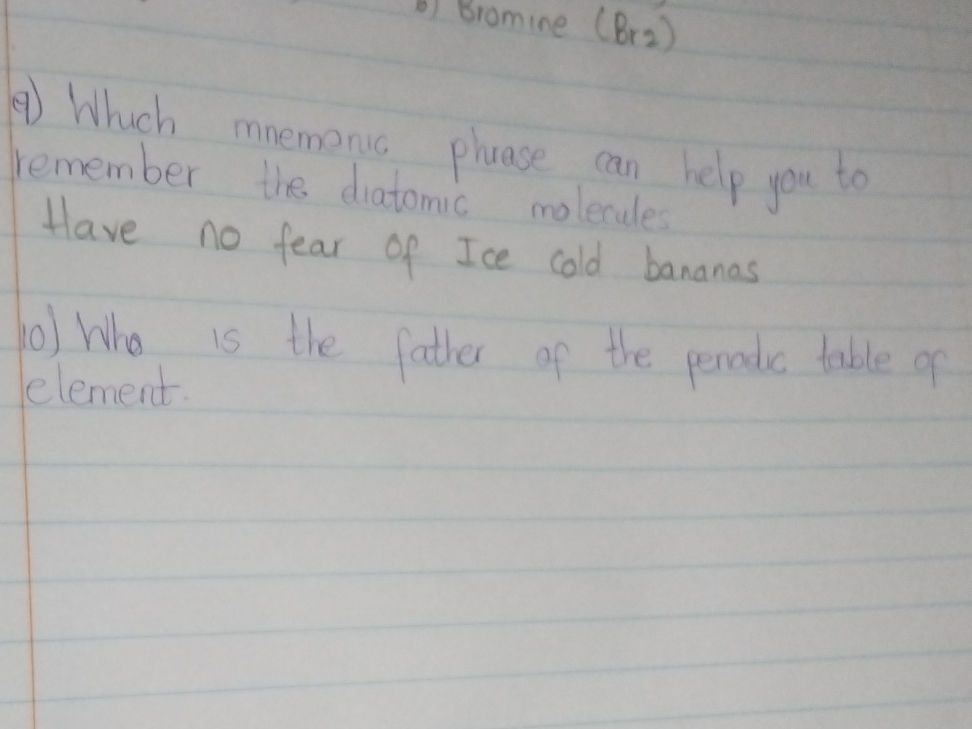 b) Bromine (Br2)
9) Which mnemonic phrase can help you to
remember the diatomic molecules
Have no fear of Ice cold bananas
10) Who is the father of the periodic table of
element.